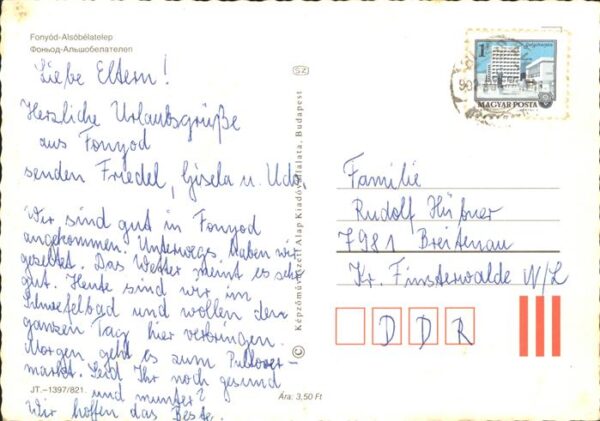 Fonyód-Alsóbélatelep
Фоньод-Альшобелателеп
Liebe Eltern!
Herzliche Urlaubsgrüße
aus Fonyod
senden Friedel, Gisela u. Udo.
Wir sind gut in Fonyod
angekommen. Unterwegs haben wir
gezeltet. Das Wetter meint es sehr
gut. Heute sind wir im
Schwefelbad und wollen den
ganzen Tag hier verbringen.
Morgen geht es zum Pullover-
markt. Seid Ihr noch gesund
und munter?
Wir hoffen das Beste.
JT.–1397/821.
Ára: 3,50 Ft
SZ
© Képzőművészeti Alap Kiadóvállalata, Budapest
1Ft
MAGYAR POSTA
Familie
Rudolf Hübner
7981 Breitenau
Kr. Finsterwalde N/L
D D R